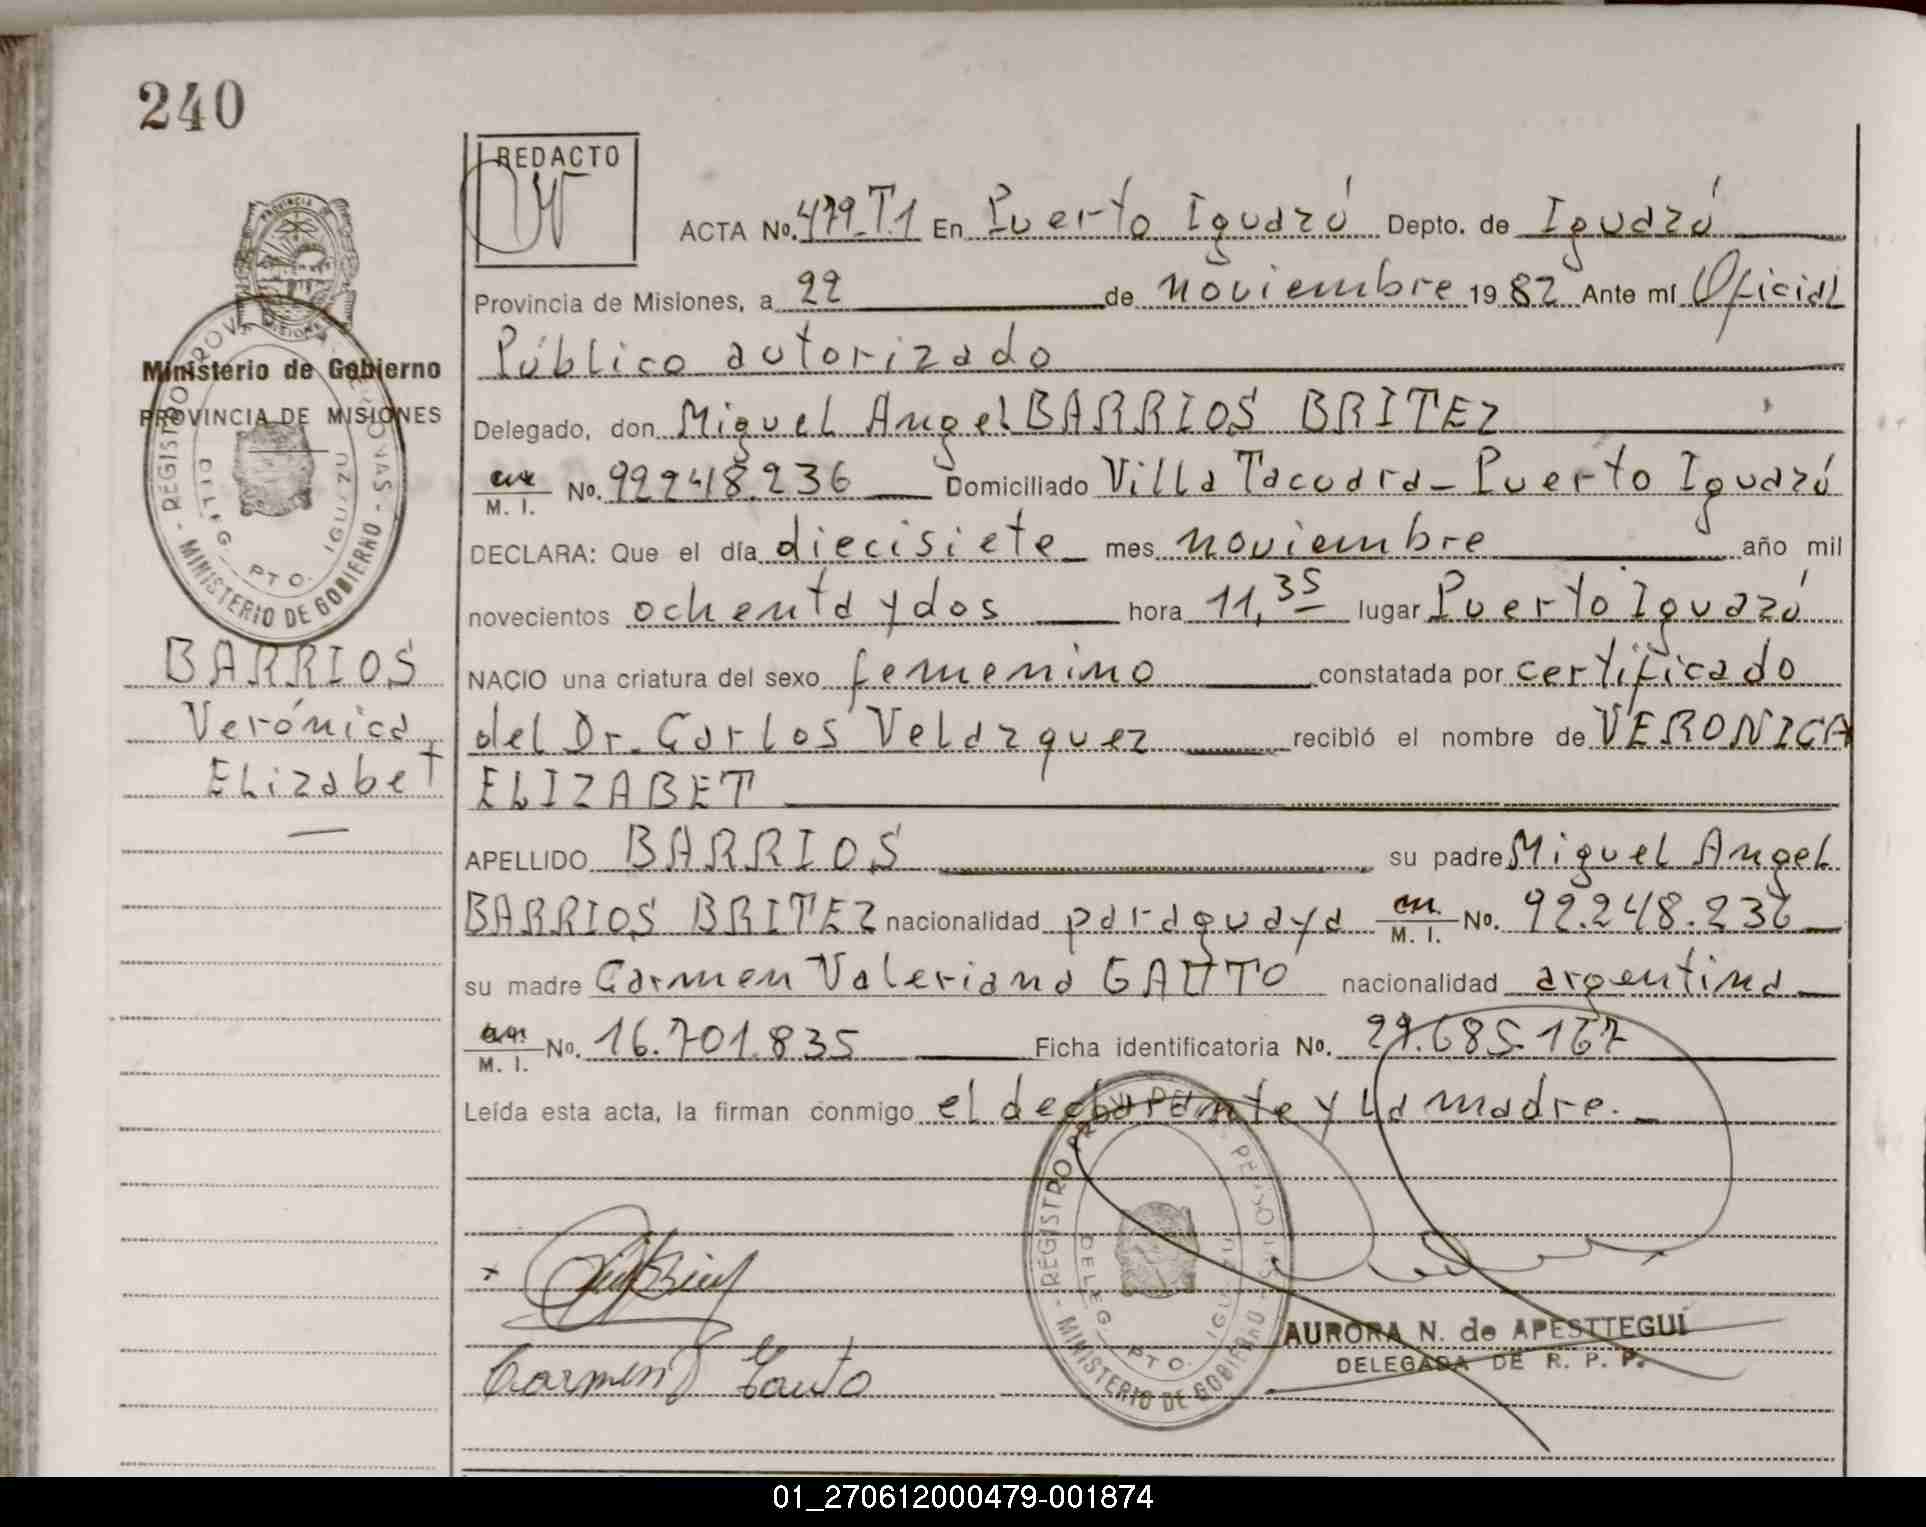 240
REDACTO
ACTA No. 479.T.1 En Puerto Iguazú Depto. de Iguazú
Provincia de Misiones, a 22 de noviembre 1982 Ante mí Oficial
Público autorizado
Ministerio de Gobierno
PROVINCIA DE MISIONES
Delegado, don Miguel Angel BARRIOS BRITEZ
M. I. No. 92.248.236 Domiciliado Villa Tacuara - Puerto Iguazú
DECLARA: Que el día diecisiete mes noviembre año mil
novecientos ochenta y dos hora 11,35 lugar Puerto Iguazú
BARRIOS
Verónica
Elizabet
NACIO una criatura del sexo femenino constatada por certificado
del Dr. Carlos Velazquez recibió el nombre de VERONICA
ELIZABET
APELLIDO BARRIOS su padre Miguel Angel
BARRIOS BRITEZ nacionalidad paraguaya M. I. No. 92.248.236
su madre Carmen Valeriana GAUTO nacionalidad argentina
M. I. No. 16.701.835 Ficha identificatoria No. 29.685.167
Leída esta acta, la firman conmigo el declarante y la madre.
REGISTRO PROV. DE LAS PERSONAS - MINISTERIO DE GOBIERNO
DELEG. PTO. IGUAZU
Carmen Gauto
AURORA N. de APESTTEGUI
DELEGADA DE R. P. P.
01_270612000479-001874